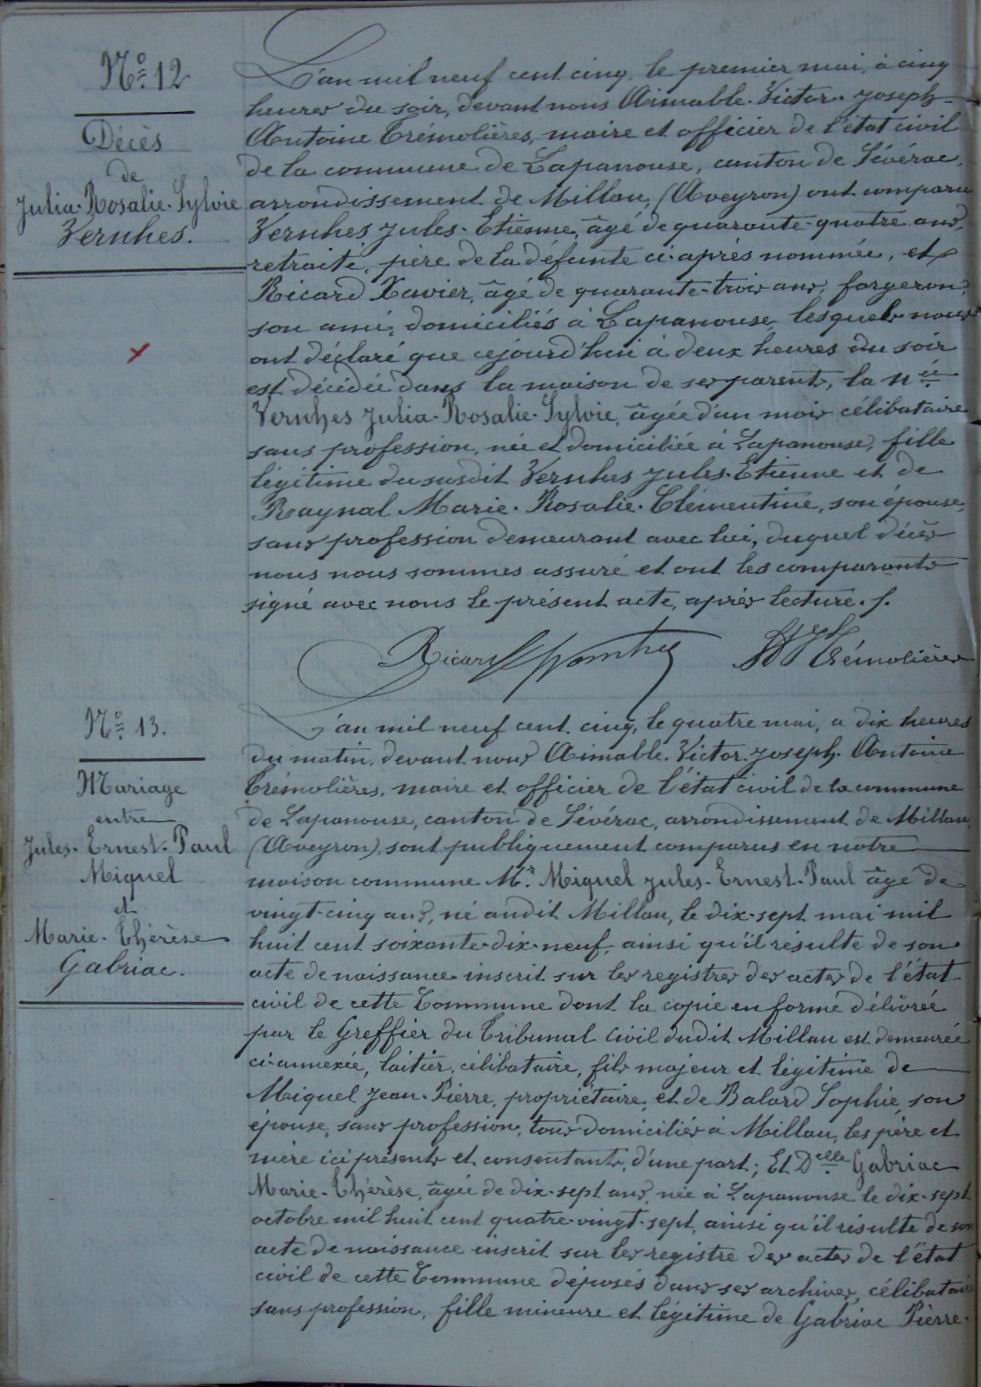 N° 12
Décès
de
Julia-Rosalie-Sylvie
Vernhes.
L'an mil neuf cent cinq, le premier mai, à cinq
heures du soir, devant nous Aimable-Victor-Joseph-
Antoine Trémolières, maire et officier de l'état civil
de la commune de Lapanouse, canton de Sévérac,
arrondissement de Millau, (Aveyron) ont comparu
Vernhes Jules-Etienne, âgé de quarante-quatre ans,
retraité, père de la défunte ci-après nommée, et
Ricard Xavier, âgé de quarante-trois ans, forgeron,
son ami, domiciliés à Lapanouse, lesquels nous
ont déclaré que cejourd'hui à deux heures du soir
est décédée dans la maison de ses parents, la née
Vernhes Julia-Rosalie-Sylvie, âgée d'un mois célibataire
sans profession, née et domiciliée à Lapanouse, fille
légitime du susdit Vernhes Jules-Etienne et de
Raynal Marie-Rosalie-Clémentine, son épouse,
sans profession demeurant avec lui, duquel décès
nous nous sommes assuré et ont les comparants
signé avec nous le présent acte, après lecture./.
Ricard Vernhes Trémolières
N° 13.
Mariage
entre
Jules-Ernest-Paul
Miquel
et
Marie-Thérèse
Gabriac.
L'an mil neuf cent cinq, le quatre mai, a dix heures
du matin, devant nous Aimable-Victor-Joseph-Antoine
Trémolières, maire et officier de l'état civil de la commune
de Lapanouse, canton de Sévérac, arrondissement de Millau,
(Aveyron), sont publiquement comparus en notre
maison commune Mr Miquel Jules-Ernest-Paul âgé de
vingt-cinq ans, né audit Millau, le dix-sept mai mil
huit cent soixante-dix-neuf, ainsi qu'il résulte de son
acte de naissance inscrit sur les registres des actes de l'état
civil de cette Commune dont la copie en forme délivrée
par le Greffier du Tribunal Civil dudit Millau est demeurée
ci-annexée, laitier, célibataire, fils majeur et légitime de
Miquel Jean-Pierre, propriétaire, et de Balard Sophie, son
épouse, sans profession, tous domiciliés à Millau, les père et
mère ici présents et consentants, d'une part; Et Delle Gabriac
Marie-Thérèse, âgée de dix-sept ans, née à Lapanouse le dix-sept
octobre mil huit cent quatre-vingt-sept, ainsi qu'il résulte de son
acte de naissance inscrit sur les registre des actes de l'état
civil de cette Commune déposés dans ses archives, célibataire
sans profession, fille mineure et légitime de Gabriac Pierre-